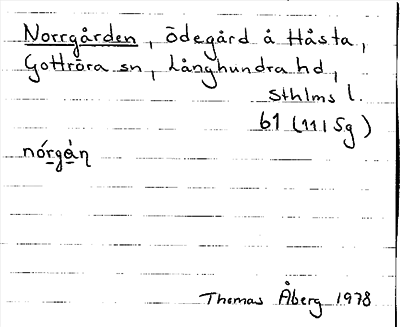 Norrgården, ödegård å Håsta,
Gottröra sn, Långhundra hd,
Sthlms l.
61 (11I5g)
nórgà̱n
Thomas Åberg 1978